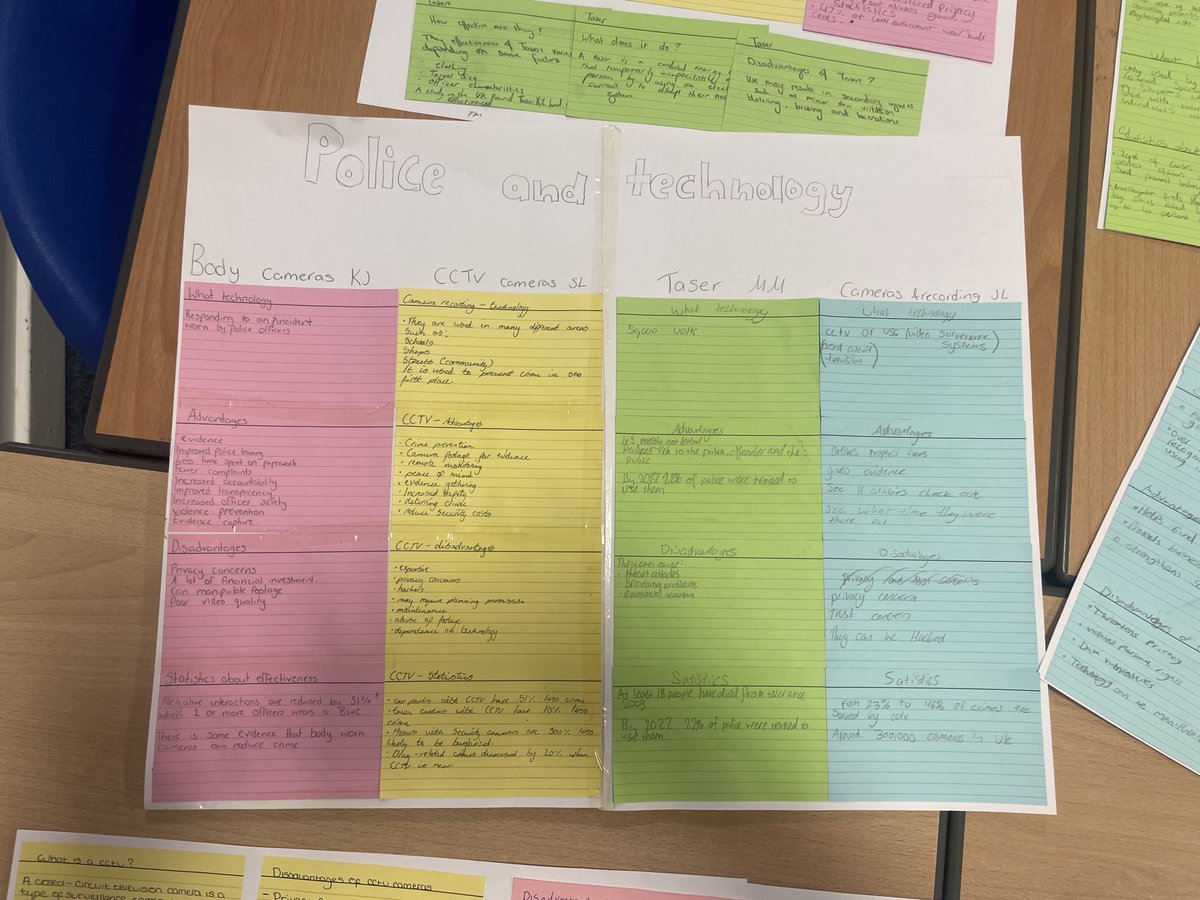 Taser
How effective are they?
They effectiveness of Tasers varies
depending on some factors
• clothing
• Target size
• Officer characteristics
A study in the UK found Taser X2 had
effectiveness
Taser
What does it do?
A taser is a conducted energy
that temporarily incapacitates a
person by using an
current to disrupt their
system
Taser
Disadvantages of Taser?
Use may result in secondary injuries
such as minor skin irritation
blistering, bruising and lacerations
privacy
Statistics
• 47% of law enforcement wear body
cams.
Police and technology
Body Cameras KJ
What technology
Responding to an incident
worn by police officers
Advantages
evidence
Improved Police training
Less time spent on paperwork
Fewer complaints
Increased accountability
Improved transparency
Increased officer safety
violence prevention
Evidence capture
Disadvantages
Privacy concerns
A lot of financial investment.
Can manipulate footage
Poor video quality
Statistics about effectiveness
Negative interactions are reduced by 51%
when 1 or more officers wears a BWC
There is some evidence that body worn
cameras can reduce crime
CCTV cameras SL
Camera recording - technology
• They are used in many different areas
such as:
Schools
Shops
Streets (community)
It is used to prevent crime in the
first place.
CCTV - Advantages
• Crime prevention
• Camera footage for evidence
• remote monitoring
• peace of mind
• evidence gathering
• Increased safety
• deterring crime
• reduce security costs
CCTV - disadvantages
• expensive
• privacy concerns
• hackers
• may require planning permission
• maintenance
• abuse of footage
• dependence on technology
CCTV - Statistics
• car parks with CCTV have 51% less crime
• town centres with CCTV have 10% less
crime
• Homes with security cameras are 300% less
likely to be burglarized.
• Drug-related crimes decreased by 20% when
CCTV is near.
Taser MM
What technology
50,000 volts
Advantages
It's mostly not lethal
Reduces risk to the police, offender and the
public
By 2022 22% of police were trained to
use them
Disadvantages
They can cause:
• Heart attacks
• Breathing problems
• emotional trauma
Satistics
At least 18 people have died from taser since
2003
By 2022 22% of police were trained to
use them
Cameras &recording JL
What technology
CCTV or VSS (video surveillance
systems)
(closed circuit
television)
Advantages
Catches peoples faces
gives evidence
See if alabies check out
See what time they were
there at
Disadvtages
privacy concern
trust concern
They can be Hacked
Satistics
From 23% to 46% of crimes are
solved by cctv
Around 300,000 cameras in UK
Statistics about
up to 40 percent
using
Advantages
• Helps find
• Protects
• strengthens
Disadvantages of
• Threatens Privacy
• violates Personal rights
• Data
• Technology can be
What is a cctv?
A closed-circuit television camera is a
type of surveillance
Disadvantages of cctv cameras